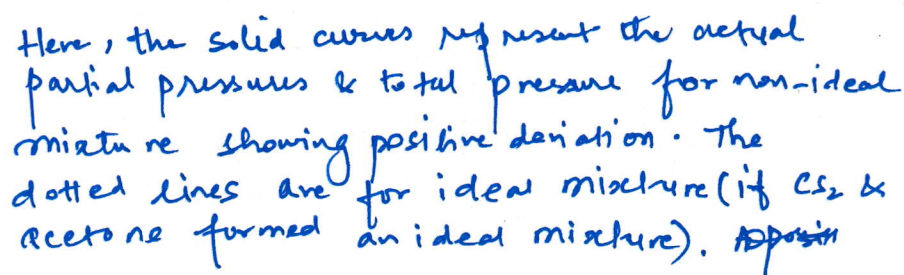 Here, the solid curves represent the actual
partial pressures & total pressure for non-ideal
mixture showing positive deviation. The
dotted lines are for ideal mixture (if CS₂ &
acetone formed an ideal mixture).